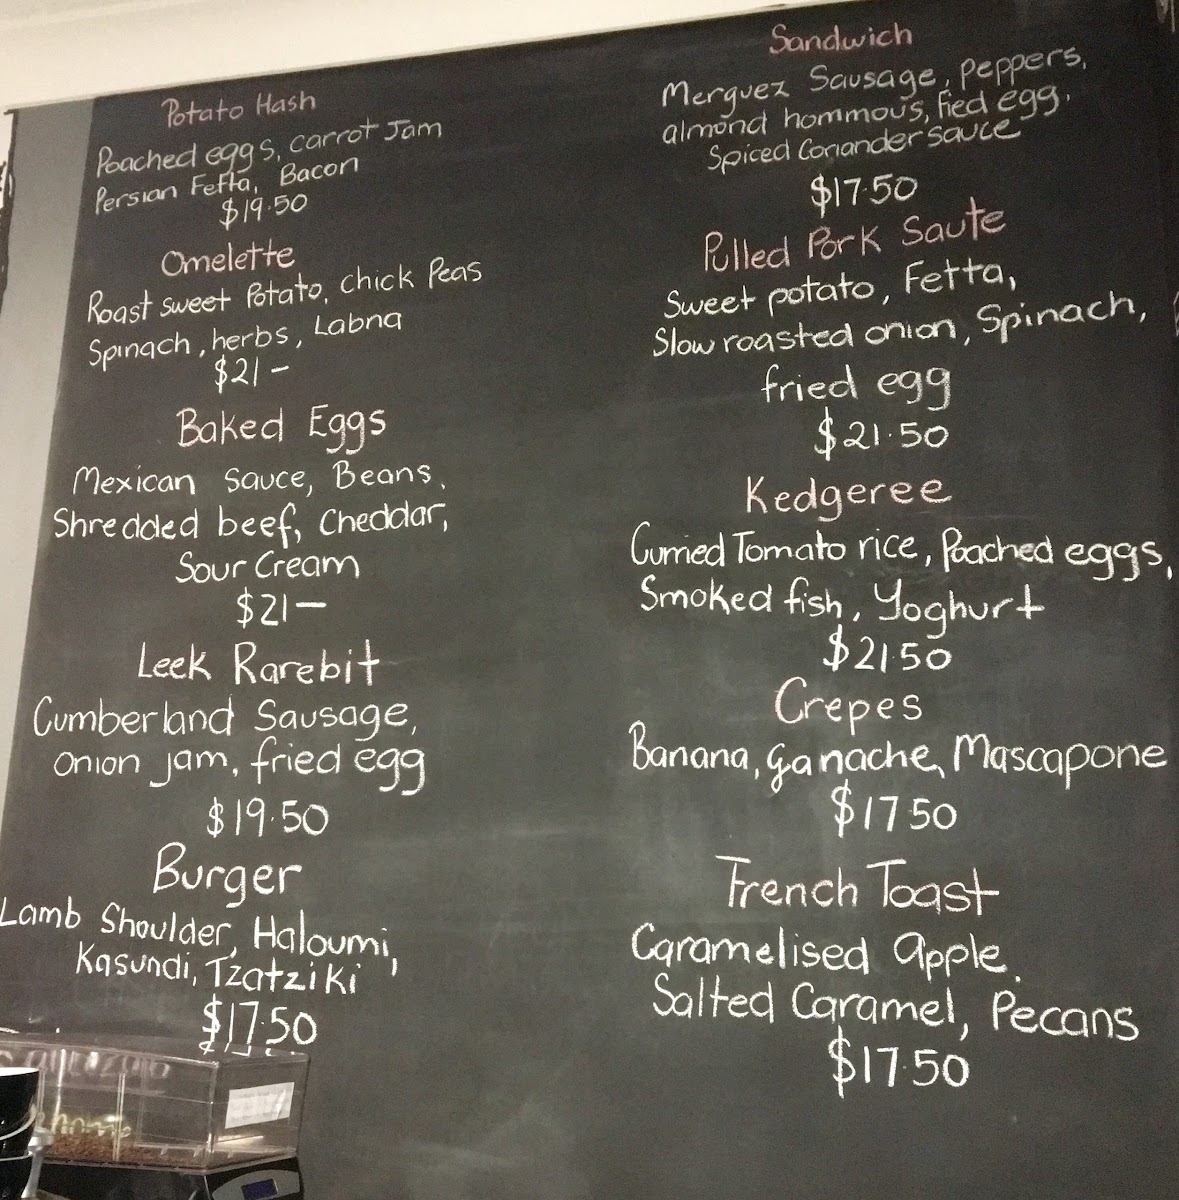 Potato Hash
Poached eggs, carrot Jam
Persian Fetta, Bacon
$19.50
Omelette
Roast sweet Potato, chick Peas
Spinach, herbs, Labna
$21-
Baked Eggs
Mexican Sauce, Beans,
Shredded beef, cheddar,
Sour Cream
$21-
Leek Rarebit
Cumberland Sausage,
onion jam, fried egg
$19.50
Burger
Lamb Shoulder, Haloumi,
Kasundi, Tzatziki
$17.50
Sandwich
Merguez Sausage, peppers,
almond hommous, fied egg,
Spiced Coriander sauce
$17.50
Pulled Pork Saute
Sweet potato, Fetta,
Slow roasted onion, Spinach,
fried egg
$21.50
Kedgeree
Curried Tomato rice, Poached eggs,
Smoked fish, Yoghurt
$21.50
Crepes
Banana, ganache, Mascapone
$17.50
French Toast
Caramelised apple,
Salted Caramel, Pecans
$17.50